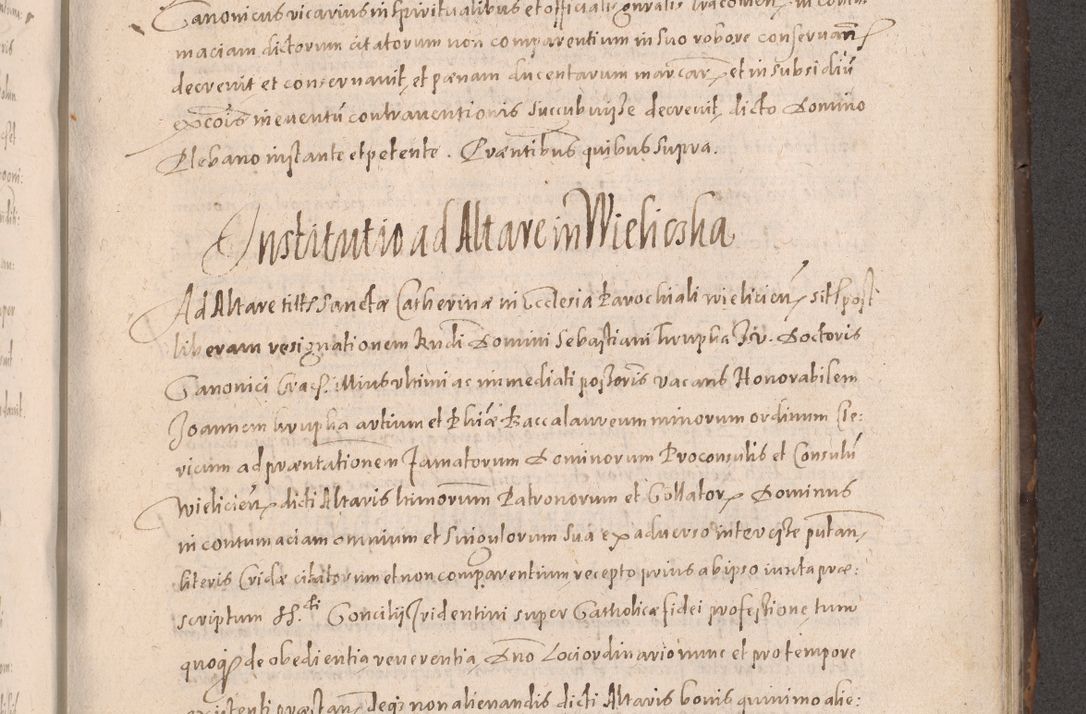 Canonicus vicarius in spiritualibus et officialis gnralis Cracovien in contu
maciam dictorum citatorum non comparentium in suo robore conservan
decrevit et conservavit, et pænam ducentarum marcar et in subsidiū
excōis in eventū contraventionis succubuisse decrevit, dicto Domino
Plebano instante et petente. Præntibus quibus supra.
Institutio ad Altare in Wielicska
Ad Altare titti Sanctæ Catherinæ in Ecclesia Parochiali wielicien, sit post
liberam resignationem Rndi Domini Sebastiani Krupka J.V. Doctoris
Canonici Crac. illius ultimi ac immediati possoris vacans Honorabilem
Joannem krupka artium et Phiæ Baccalaureum minorum ordinum Cle:
ricum ad præntationem famatorum Dominorum Proconsulis et Consulū
wielicien dicti Altaris Patronorum et Collator Dominus
in contumaciam omnium et singulorum sua ex adverso interesse putan
literis Cridæ citatorum et non comparentium recepto prius ab ipso iuxta præ:
scriptum SS.cti Concilij Tridentini super Catholicæ fidei professione tum
quoq de obedientia reverentia, Dno Loci ordinario nunc et pro tempore
existenti præstan, deq non alienandis dicti Altaris bonis quinimo alie: